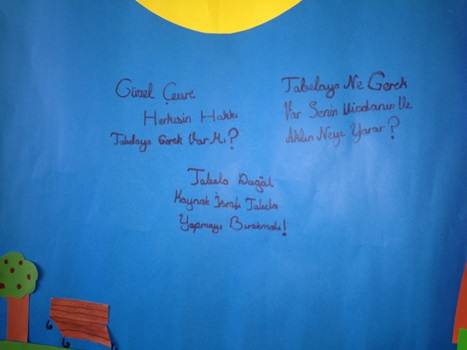 Güzel Çevre
Herkesin Hakkı
Tabelaya Gerek Var Mı?
Tabelaya Ne Gerek
Var Senin Vicdanın Ve
Aklın Neye Yarar?
Tabela Değil
Kaynak İsrafı Tabela
Yapmayı Bırakmalı!